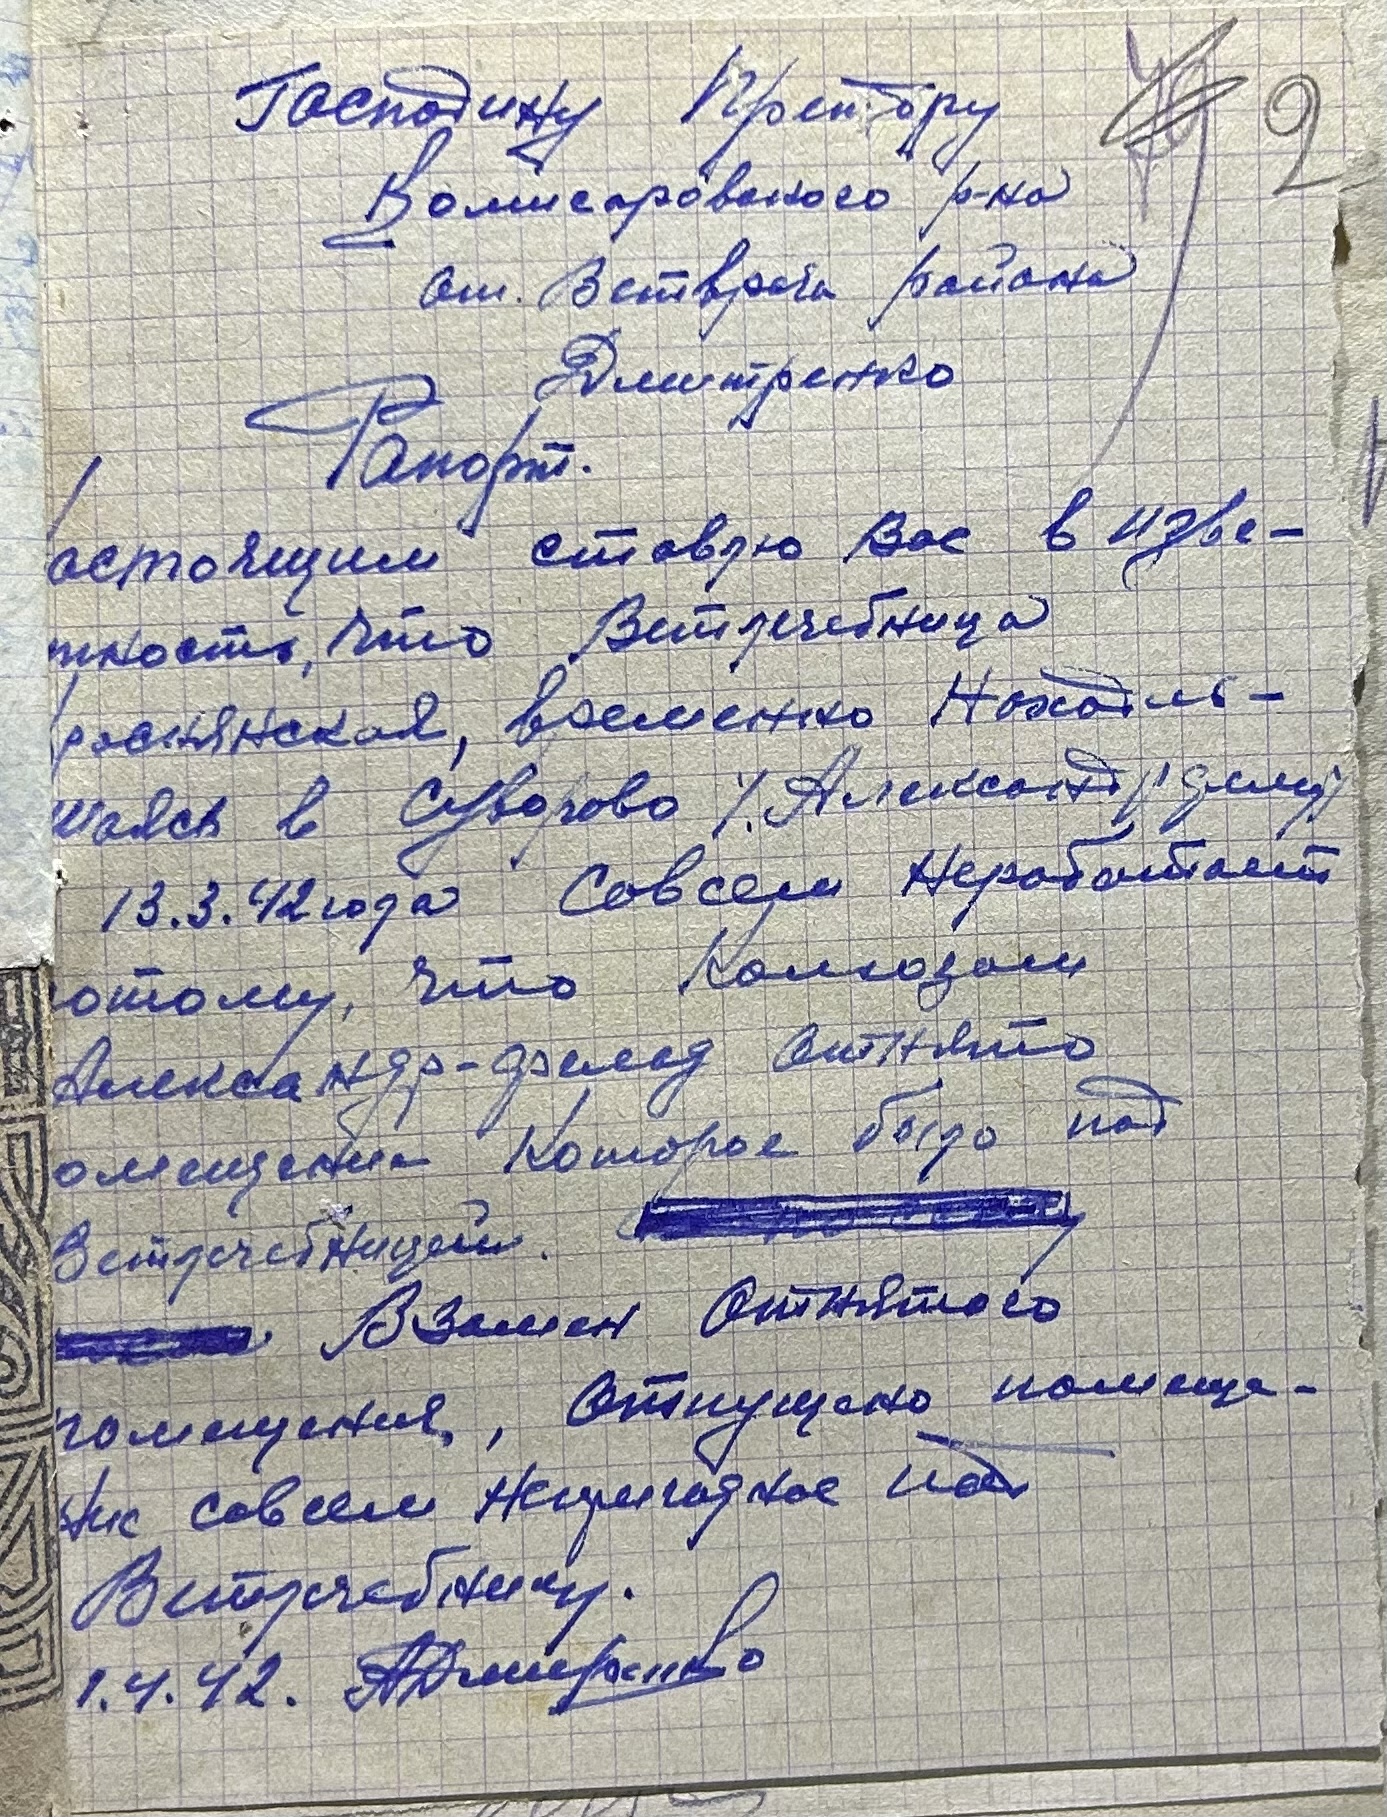 2
Господину
р-на
от. Ветврача района
Дмитренко
Рапорт.
астоящим ставлю Вас в изве-
тность, что Ветлечебница
временно Находив-
шаяся в Суворово
13.3.42 года Совсем Неработает
отому, что Колхозом
Александр-фельд отнято
омещение Которое было под
Ветлечебницей.
Взамен Отнятого
помещения, Отпущено помеще-
ние совсем Непригодное под
Ветлечебницу.
1.4.42. АДмитренко